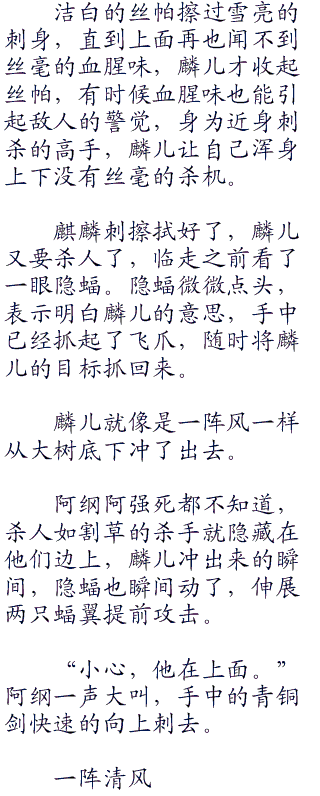 洁白的丝帕擦过雪亮的
刺身，直到上面再也闻不到
丝毫的血腥味，麟儿才收起
丝帕，有时候血腥味也能引
起敌人的警觉，身为近身刺
杀的高手，麟儿让自己浑身
上下没有丝毫的杀机。
麒麟刺擦拭好了，麟儿
又要杀人了，临走之前看了
一眼隐蝠。隐蝠微微点头，
表示明白麟儿的意思，手中
已经抓起了飞爪，随时将麟
儿的目标抓回来。
麟儿就像是一阵风一样
从大树底下冲了出去。
阿纲阿强死都不知道，
杀人如割草的杀手就隐藏在
他们边上，麟儿冲出来的瞬
间，隐蝠也瞬间动了，伸展
两只蝠翼提前攻击。
“小心，他在上面。”
阿纲一声大叫，手中的青铜
剑快速的向上刺去。
一阵清风